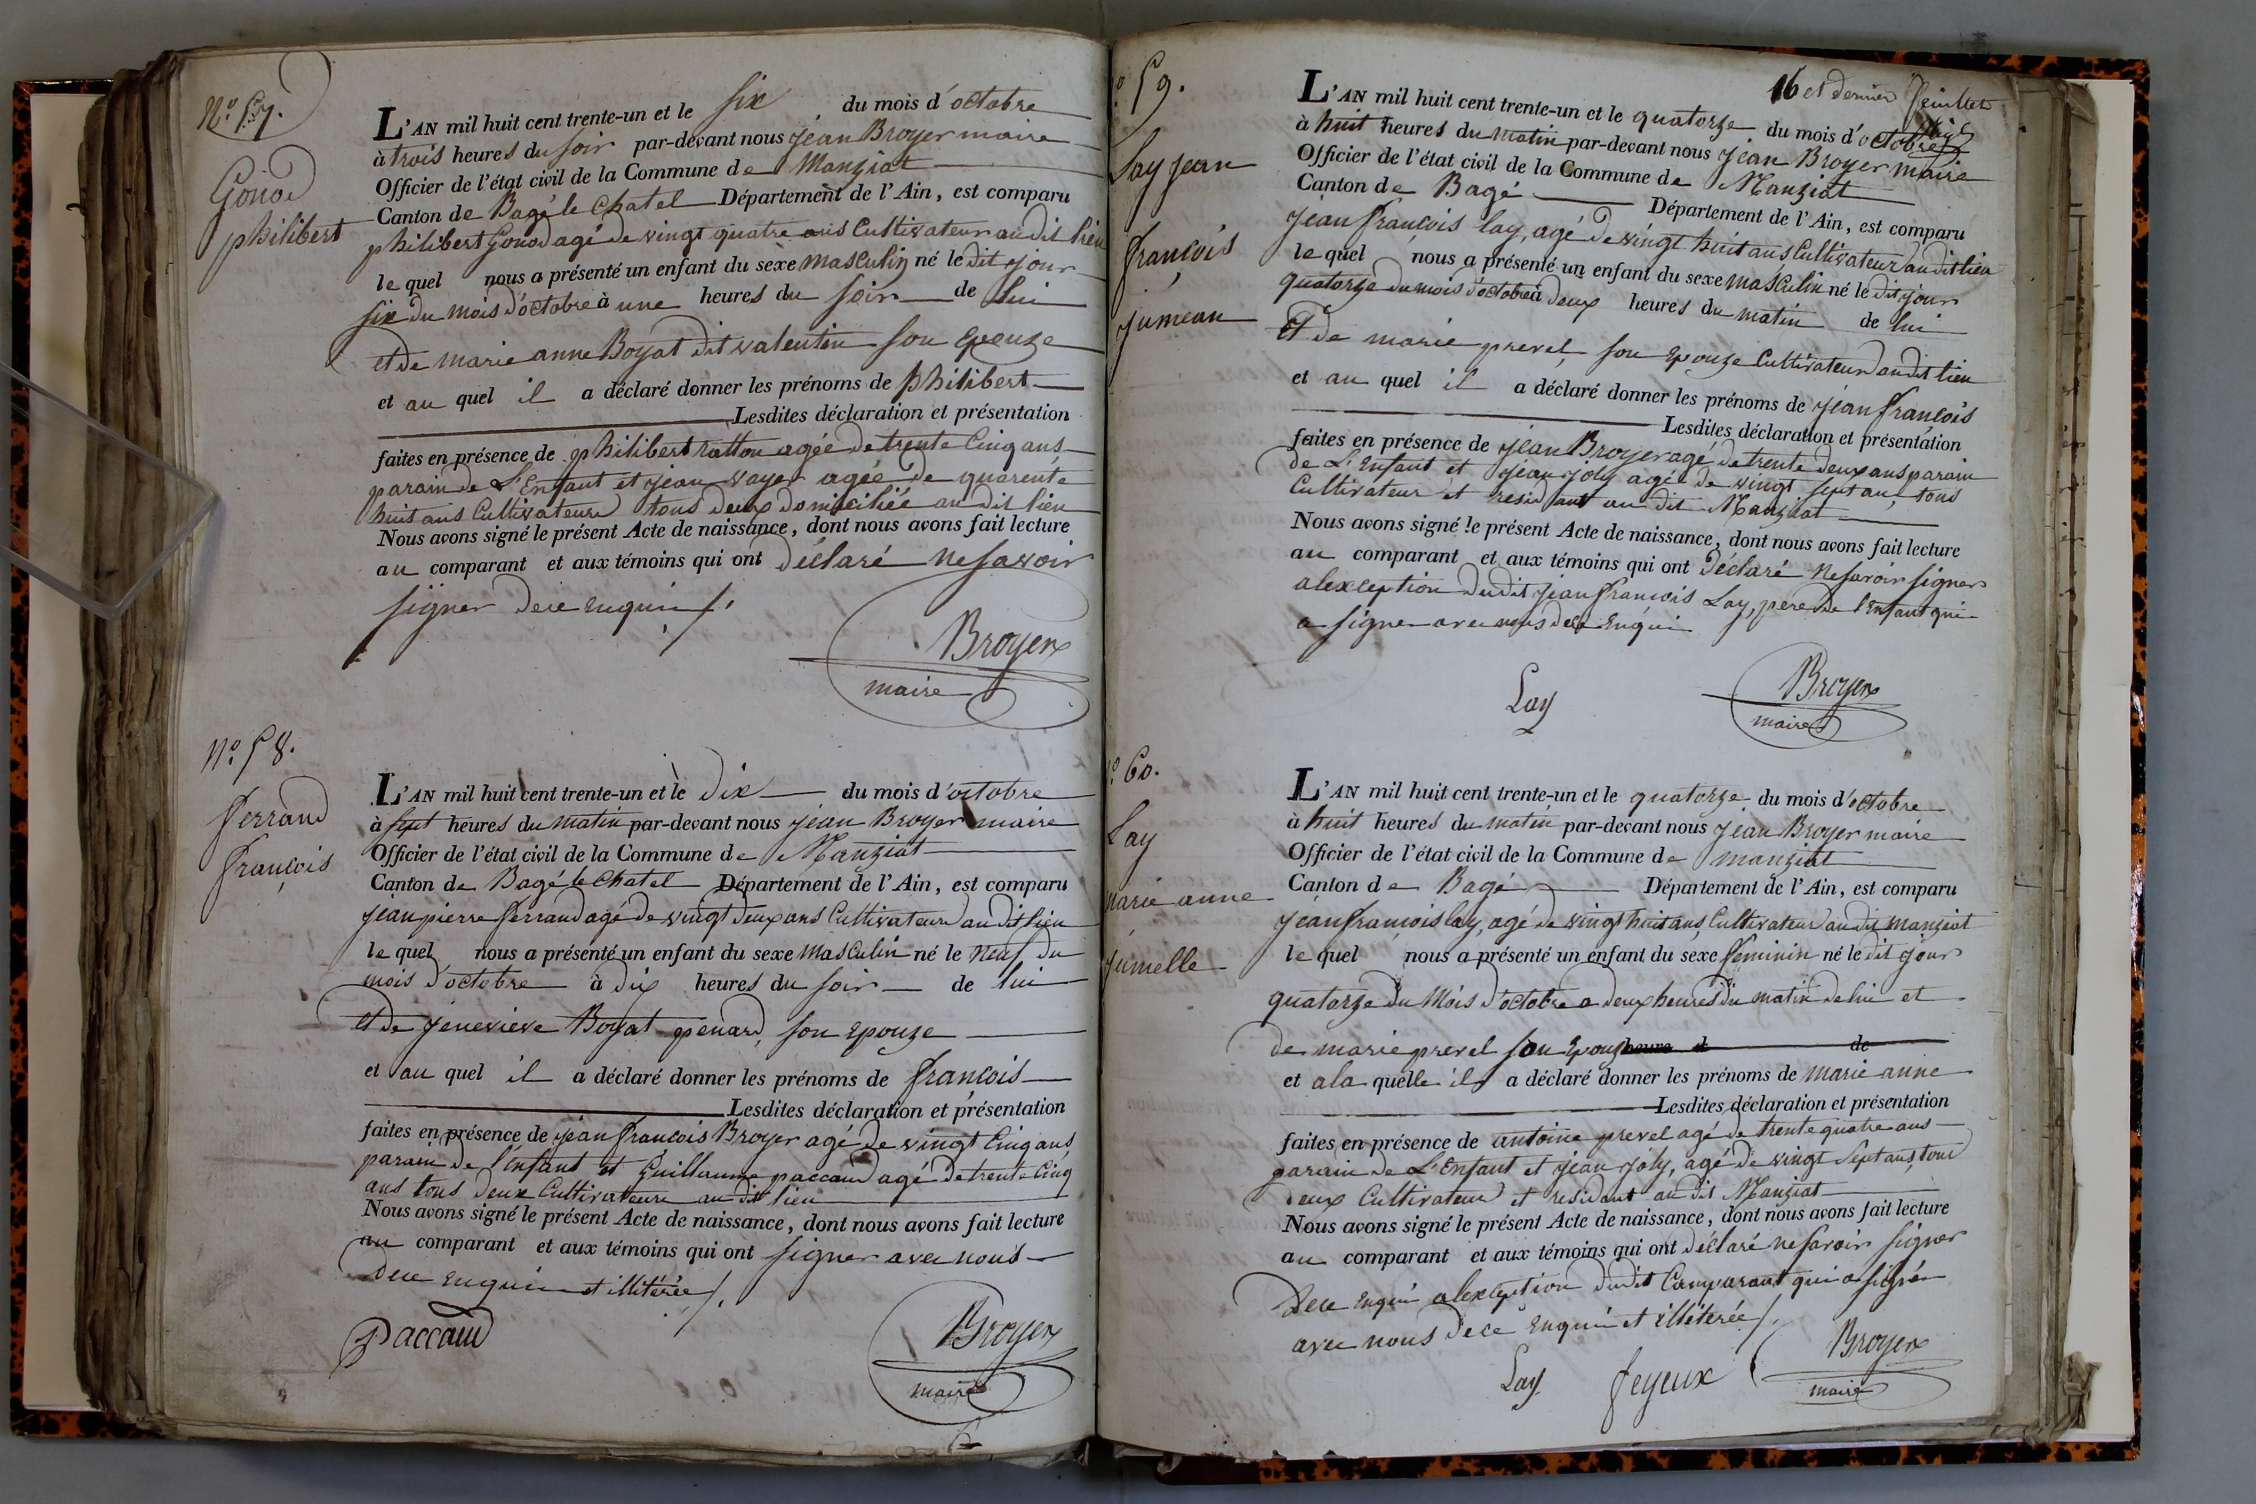 N.º 57.
Gonod
philibert
L'AN mil huit cent trente-un et le six du mois d'octobre
à trois heures du soir par-devant nous jean Broyer maire
Officier de l'état civil de la Commune de Manziat
Canton de Bagé le Chatel Département de l'Ain, est comparu
philibert Gonod agé de vingt quatre ans Cultivateur au dit lieu
le quel nous a présenté un enfant du sexe masculin né le dit jour
six du mois d'octobre à une heures du soir de lui
et de marie anne Boyat dit valentin son Epouze
et au quel il a déclaré donner les prénoms de philibert
Lesdites déclaration et présentation
faites en présence de philibert ratton agée de trente Cinq ans
parain de L'Enfant et jean vayer agée de quarente
huit ans Cultivateurs tous deux domiciliée au dit lieu
Nous avons signé le présent Acte de naissance, dont nous avons fait lecture
au comparant et aux témoins qui ont déclaré ne savoir
signer dece enquis /.
Broyer
maire
N.º 58.
ferrand
françois
L'AN mil huit cent trente-un et le dix du mois d'octobre
à sept heures du matin par-devant nous jean Broyer maire
Officier de l'état civil de la Commune de Manziat
Canton de Bagé le Chatel Département de l'Ain, est comparu
jean pierre ferrand agé de vingt deux ans Cultivateur au dit lieu
le quel nous a présenté un enfant du sexe masculin né le neuf du
mois d'octobre à dix heures du soir de lui
et de jenevieve Boyat penard, son epouze
et au quel il a déclaré donner les prénoms de françois
Lesdites déclaration et présentation
faites en présence de jean françois Broyer agé de vingt Cinq ans
parain de l'enfant et Guillaume paccaud agé de trente Cinq
ans tous deux Cultivateurs au dit lieu
Nous avons signé le présent Acte de naissance, dont nous avons fait lecture
au comparant et aux témoins qui ont signer avec nous
dece enquis et illitérée /.
Paccaud
Broyer
maire
16 et dernier feuillet
º 59.
Lay jean
françois
jumeau
L'AN mil huit cent trente-un et le quatorze du mois d'octobre
à huit heures du matin par-devant nous jean Broyer maire
Officier de l'état civil de la Commune de Manziat
Canton de Bagé Département de l'Ain, est comparu
jean françois lay, agé de vingt huit ans Cultivateur au dit lieu
le quel nous a présenté un enfant du sexe masculin né le dit jour
quatorze du mois d'octobre à deux heures du matin de lui
Et de marie prevel son Epouze Cultivateurs au dit lieu
et au quel il a déclaré donner les prénoms de jean françois
Lesdites déclaration et présentation
faites en présence de jean Broyer agé de trente deux ans parain
de L'Enfant et jean joly agé de vingt sept ans, tous
Cultivateur et residant au dit Manziat
Nous avons signé le présent Acte de naissance, dont nous avons fait lecture
au comparant et aux témoins qui ont déclaré ne savoir signer
alexception dudit jean françois Lay, pere de l'Enfant qui
a signer avec nous dece Enquis
Lay
Broyer
maire
º 60.
Lay
marie anne
jumelle
L'AN mil huit cent trente-un et le quatorze du mois d'octobre
à huit heures du matin par-devant nous jean Broyer maire
Officier de l'état civil de la Commune de manziat
Canton de Bagé Département de l'Ain, est comparu
jean françois lay, agé de vingt huit ans Cultivateur au dit manziat
le quel nous a présenté un enfant du sexe feminin né le dit jour
quatorze du Mois d'octobre a deux heures du matin de lui et
de marie prevel son Epouz heure d de
et a la quelle il a déclaré donner les prénoms de marie anne
Lesdites déclaration et présentation
faites en présence de antoine prevel agé de trente quatre ans
parain de L'Enfant et jean joly, agé de vingt sept ans, tous
deux Cultivateurs et residant au dit Manziat
Nous avons signé le présent Acte de naissance, dont nous avons fait lecture
au comparant et aux témoins qui ont déclaré ne savoir signer
Dece enquis alexception dudit Comparant qui a signer
avec nous dece enquis et illétérée /.
Lay
feyeux
Broyer
maire